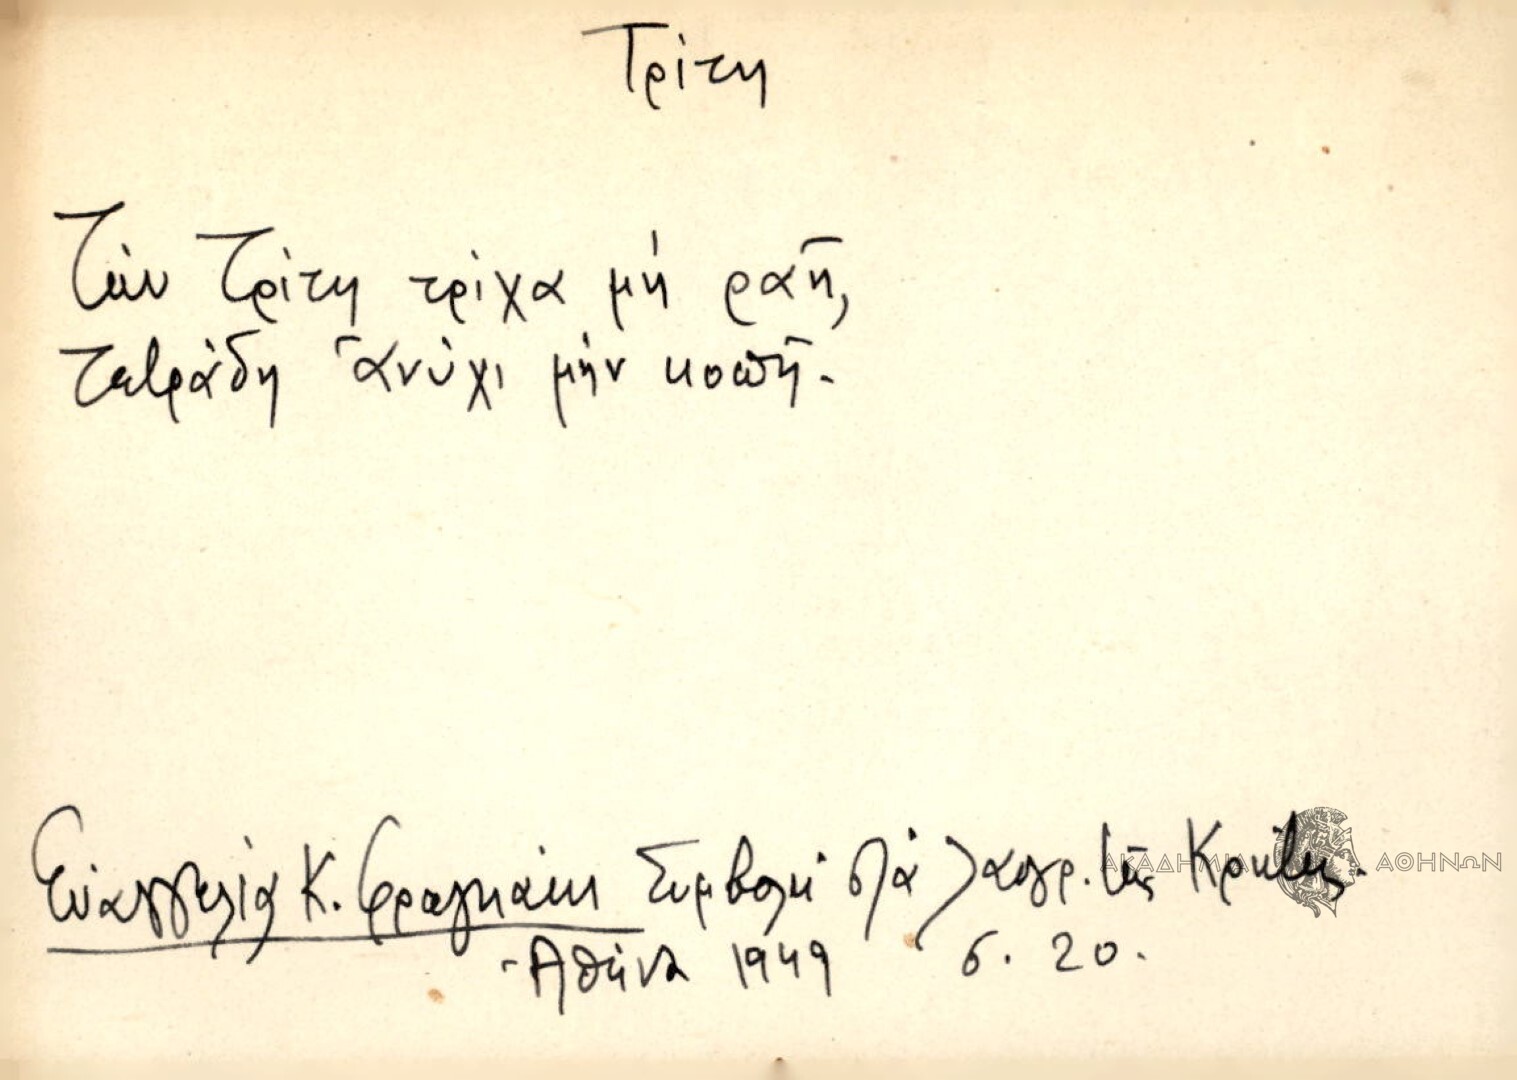 Τρίτη
Τὴν Τρίτη τρίχα μὴ ραῆ,
Τετράδη ἀνύχι μὴν κοπῆ.
Εὐαγγελία Κ. Φραγκάκι Συμβολὴ στὰ λαογρ. τῆς Κρήτης.
Ἀθήνα 1949 σ. 20.
ΑΚΑΔΗΜΙΑ ΑΘΗΝΩΝ